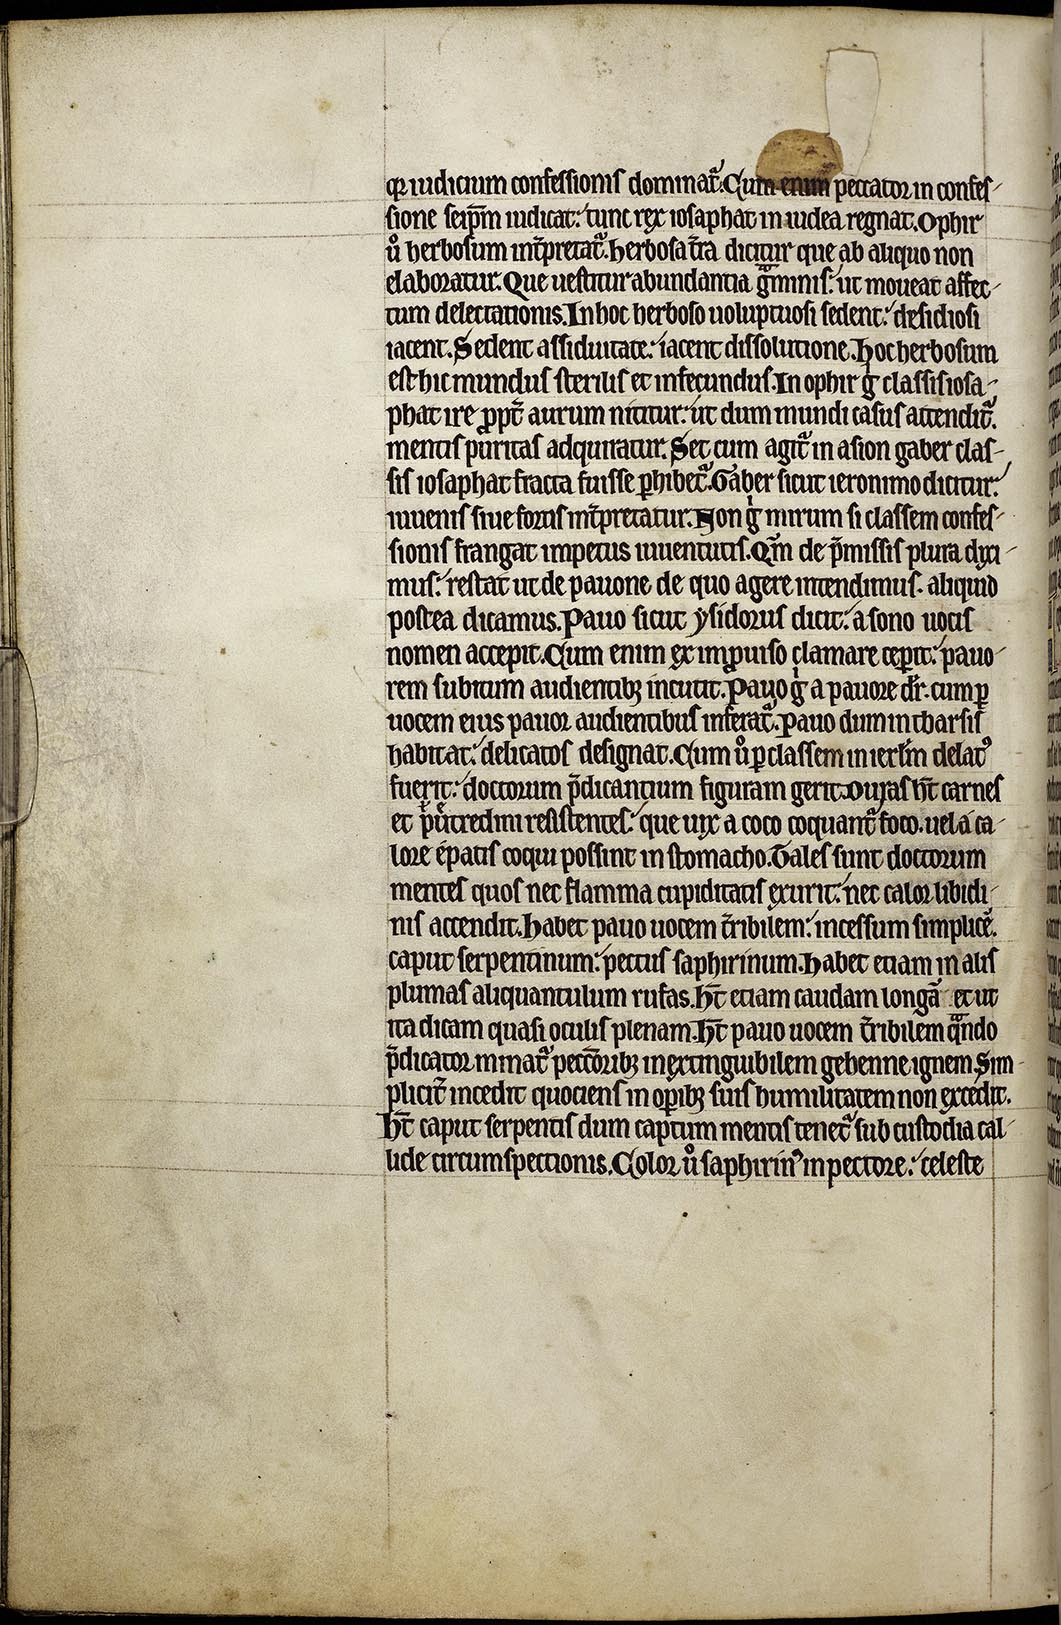 qr iudicium confessionis dominat᷑. Cum enim peccator in confes-
sione seip̄m iudicat: tunc rex iosaphat in iudea regnat. Ophir
u̓ herbosum int̄pretat᷑. herbosa t̄ra dicitur que ab aliquo non
elaboratur. Que uestitur abundantia gͣminis: ut moueat affec-
tum delectationis. In hoc herboso uoluptuosi sedent: desidiosi
iacent. Sedent assiduitate: iacent dissolutione. Hoc herbosum
est hic mundus sterilis et infecundus. In ophir gͥ classis iosa-
phat ire ꝓpt̄ aurum nititur: ut dum mundi casus attendit᷑.
mentis puritas adquiratur. Set cum agit᷑ in asion gaber clas-
sis iosaphat fracta fuisse ꝑhibet᷑. Gaber sicut ieronimo dicitur:
iuuenis siue fortis int̄pretatur. Non gͥ mirum si classem confes-
sionis frangat impetus iuuentutis. Qm̄ de p̄missis plura dixi-
mus: restat ut de pauone de quo agere intendimus. aliquid
postea dicamus. Pauo sicut ysidorus dicit: a sono uocis
nomen accepit. Cum enim ex improuiso clamare ceꝑit: pauo-
rem subitum audientibꝫ incutit. Pauo gͥ a pauore dr̄. cum ꝑ
uocem eius pauor audientibus inferat᷑. Pauo dum in tharsis
habitat: delicatos designat. Cum u̓ ꝑ classem in ierlm̄ delatꝰ
fuerit: doctorum p̄dicantium figuram gerit. Duras ht̄ carnes
et putredini resistentes: que uix a coco coquant᷑ foco. uel a ca-
lore epatis coqui possint in stomacho. Tales sunt doctorum
mentes quos nec flamma cupiditatis exurit: nec calor libidi-
nis accendit. Habet pauo uocem t̄ribilem: incessum simplicē.
caput serpentinum: pectus saphirinum. Habet etiam in alis
plumas aliquantulum rufas. Ht̄ etiam caudam longā et ut
ita dicam quasi oculis plenam. Ht̄ pauo uocem t̄ribilem qͣndo
p̄dicator minat᷑ pecc̄toribꝫ inextinguibilem gehenne ignem. Sim-
plicit̄ incedit quociens in oꝑibꝫ suis humilitatem non excedit.
Ht̄ caput serpentis dum captum mentis tenet᷑ sub custodia cal-
lide circumspectionis. Color u̓ saphirinꝰ in pectore: celeste